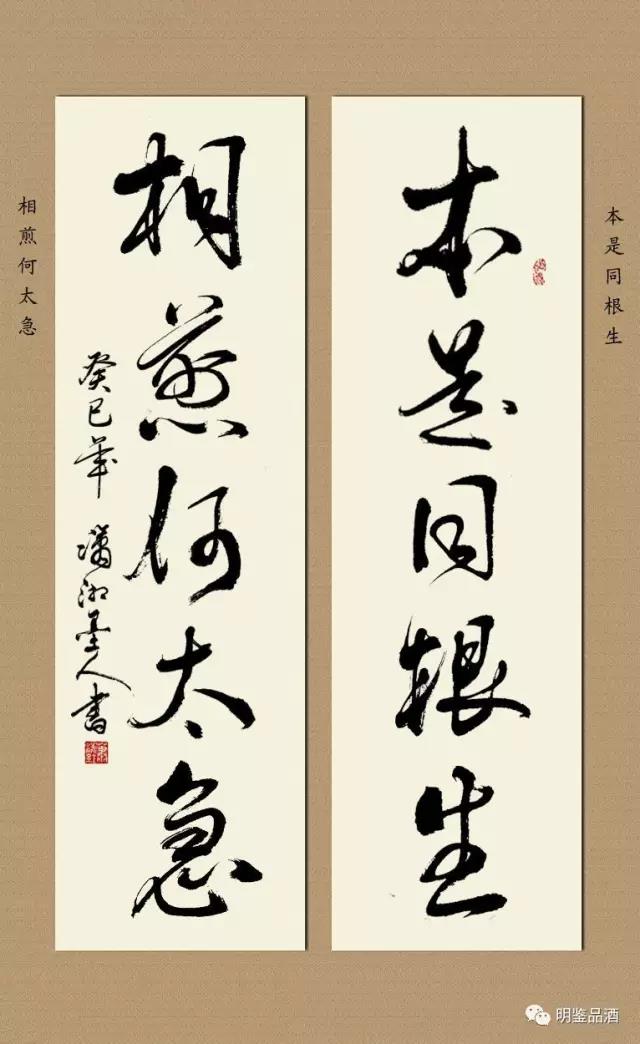 本是同根生
本是同根生
相煎何太急
癸巳年 潇湘墨人书
相煎何太急
明鉴品酒